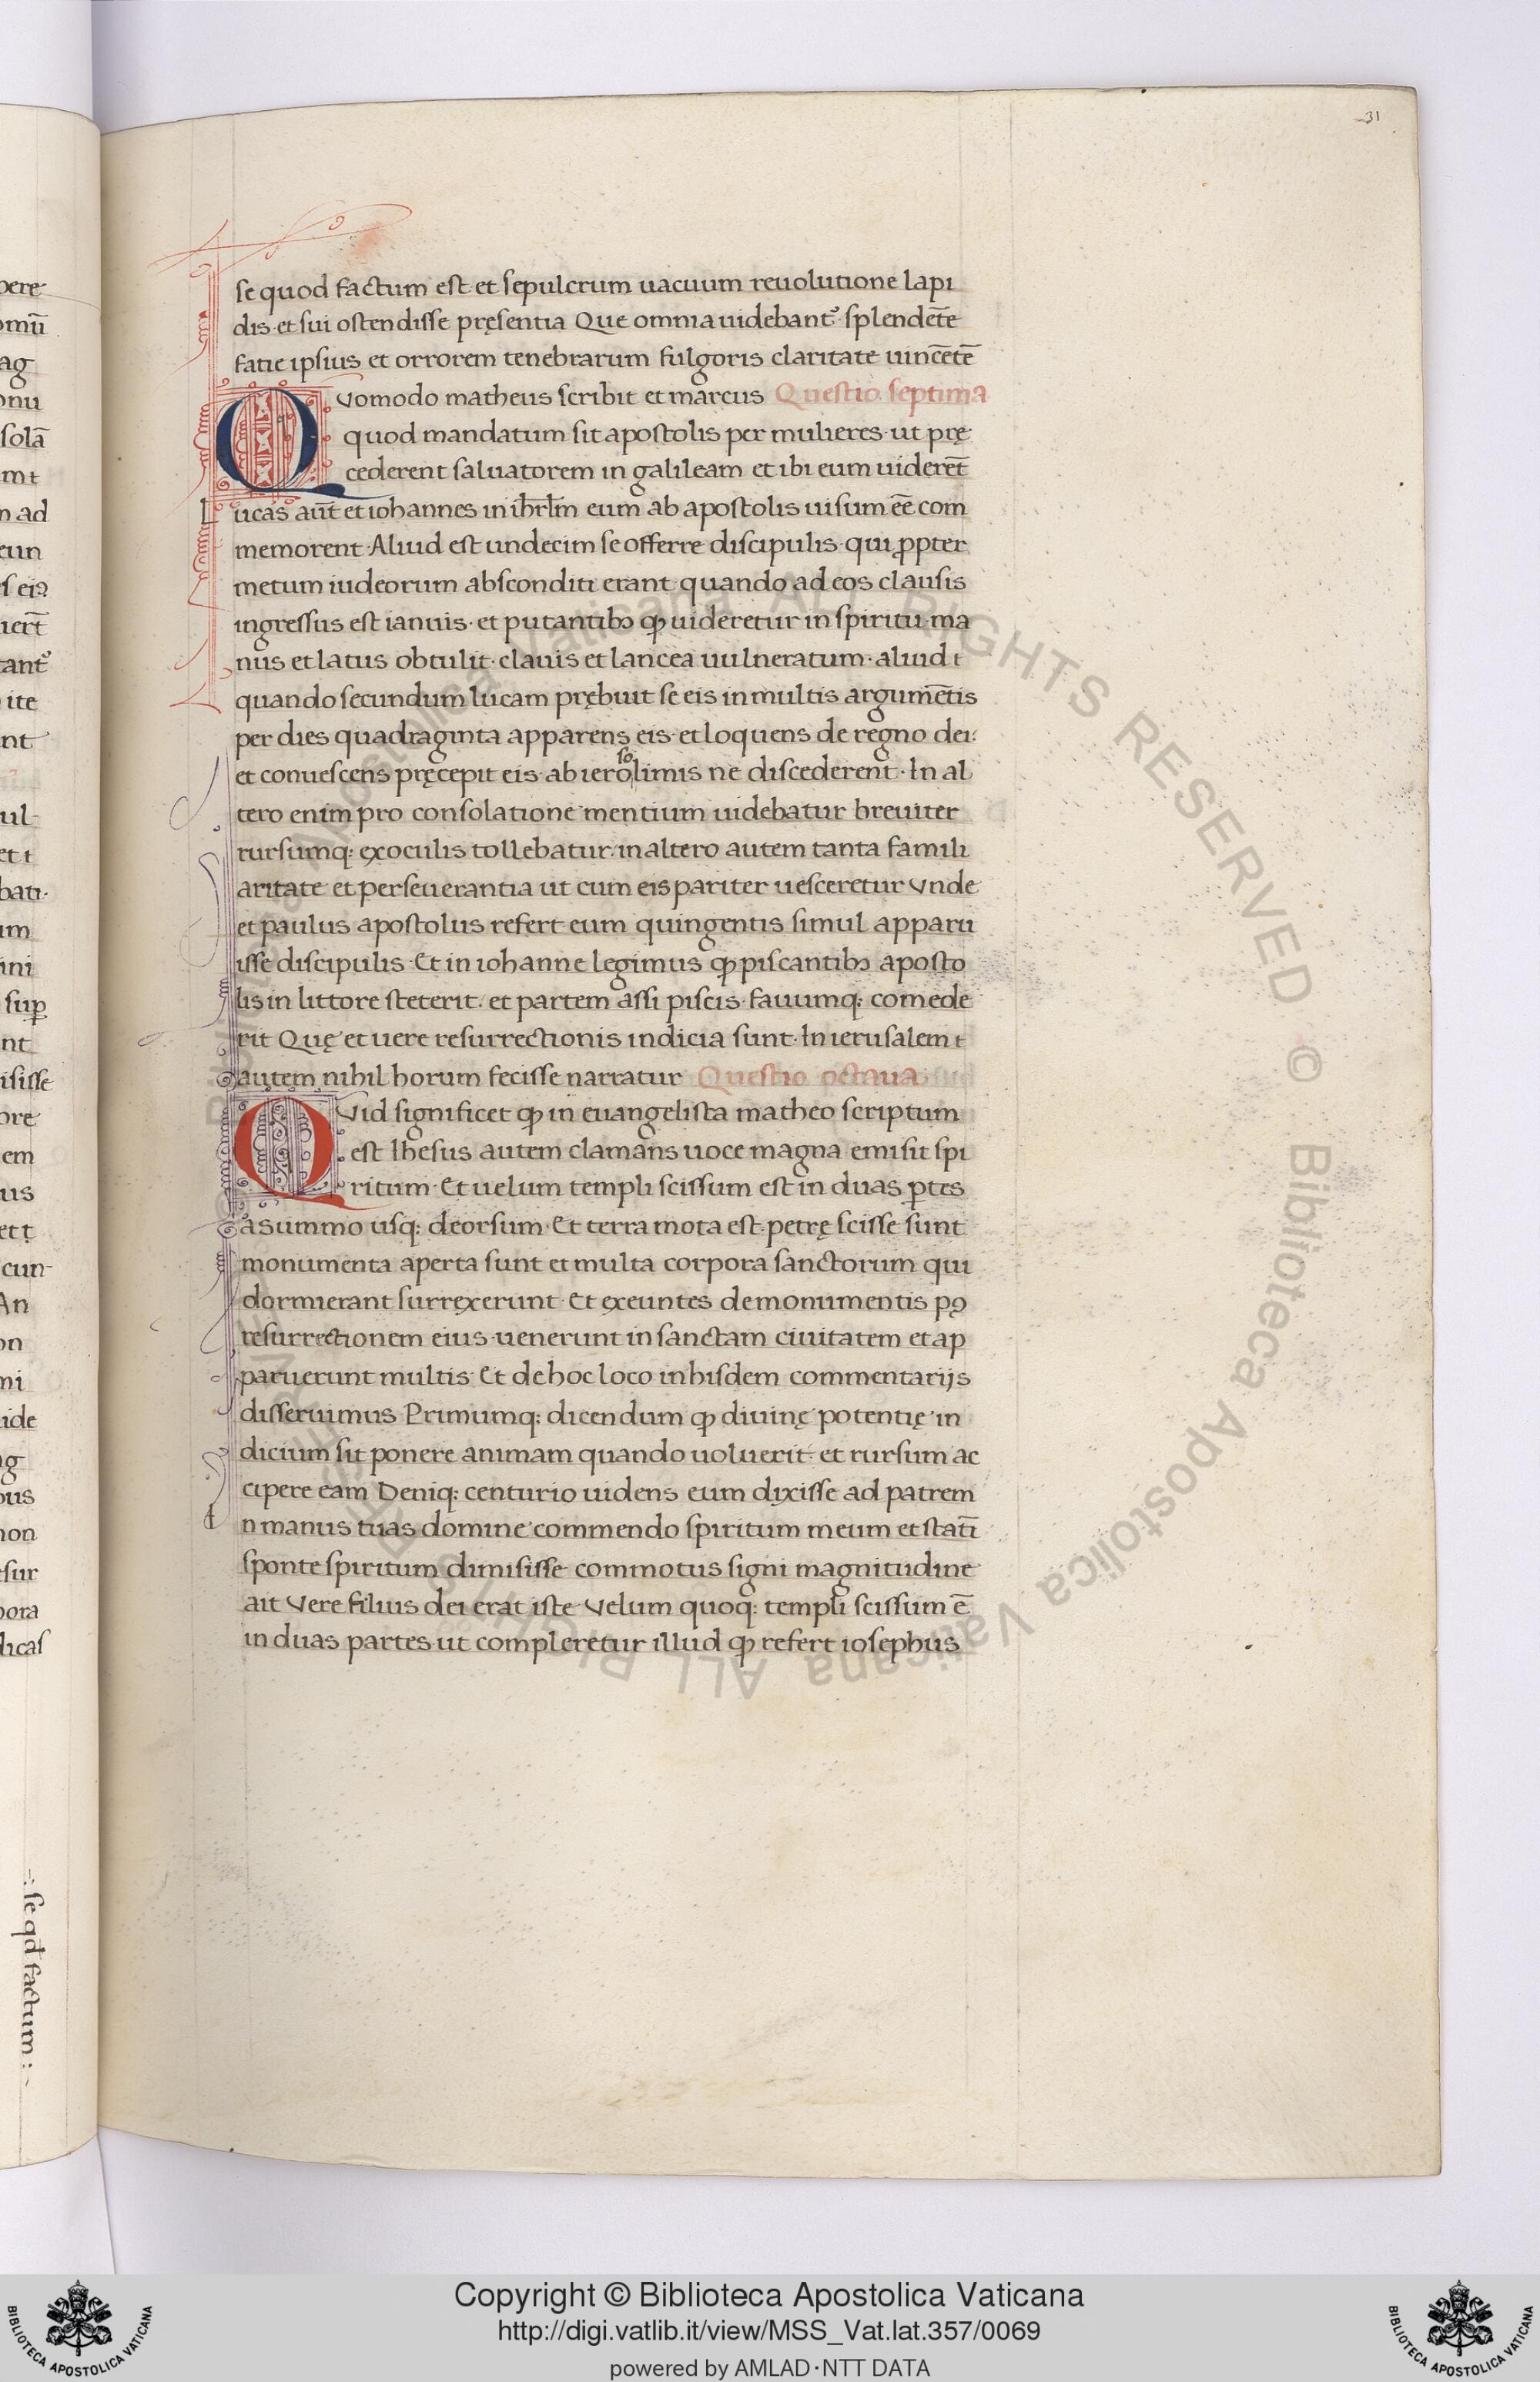 31
se quod factum est et sepulcrum uacuum reuolutione lapi
dis et sui ostendisse pręsentia Que omnia uidebant᾽ splendēte
fatie ipsius et orrorem tenebrarum fulgoris claritate uincētē
Quomodo matheus scribit et marcus Questio septima
quod mandatum sit apostolis per mulieres ut prę
cederent saluatorem in galileam et ibi eum uiderēt
Lucas aūt et iohannes in ihrl̄m eum ab apostolis uisum eē com
memorent Aliud est undecim se offerre discipulis qui ꝓpter
metum iudeorum absconditi erant quando ad eos clausis
ingressus est ianuis et putantibꝫ ꝙ uideretur in spiritu ma
nus et latus obtulit clauis et lancea uulneratum aliud t
quando secundum lucam prębuit se eis in multis argumētis
per dies quadraginta apparens eis et loquens de regno dei:
et conuescens pręcepit eis ab ierosolimis ne discederent In al
tero enim pro consolatione mentium uidebatur breuiter
rursumq: exoculis tollebatur in altero autem tanta famili
aritate et perseuerantia ut cum eis pariter uesceretur Vnde
et paulus apostolus refert eum quingentis simul apparu
isse discipulis Et in iohanne legimus ꝙ piscantibꝫ aposto
lis in littore steterit et partem assi piscis fauumq: comede
rit Quę et uere resurrectionis indicia sunt In ierusalem t
autem nihil horum fecisse narratur Questio octaua
QVid significet ꝙ in euangelista matheo scriptum
est Ihesus autem clamans uoce magna emisit spi
ritum Et uelum templi scissum est in duas ꝑtes
a summo usq: deorsum Et terra mota est petrę scisse sunt
monumenta aperta sunt et multa corpora sanctorum qui
dormierant surrexerunt Et exeuntes de monumentis pꝯ
resurrectionem eius uenerunt in sanctam ciuitatem et ap
paruerunt multis Et de hoc loco in hisdem commentarijs
disseruimus Primumq: dicendum ꝙ diuinę potentię in
dicium sit ponere animam quando uoluerit et rursum ac
cipere eam Deniq: centurio uidens eum dixisse ad patrem
In manus tuas domine commendo spiritum meum et stati̅
sponte spiritum dimisisse commotus signi magnitudine
ait Vere filius dei erat iste Velum quoq: templi scissum ē
in duas partes ut compleretur illud ꝙ refert iosephus
se qd factum
Copyright © Biblioteca Apostolica Vaticana
http://digi.vatlib.it/view/MSS_Vat.lat.357/0069
powered by AMLAD·NTT DATA
BIBLIOTECA APOSTOLICA VATICANA
BIBLIOTECA APOSTOLICA VATICANA